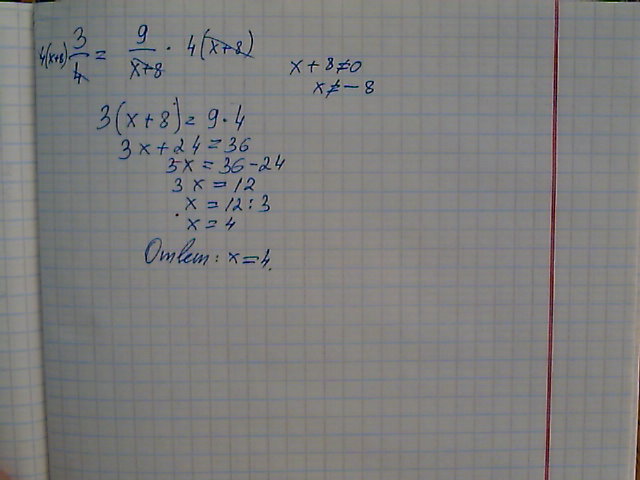 4(x+8) 3/4 = 9/(x+8) · 4(x+8)
x + 8 ≠ 0
x ≠ - 8
3(x+8) = 9·4
3x + 24 = 36
3x = 36 - 24
3x = 12
x = 12 : 3
x = 4
Ответ: x = 4.